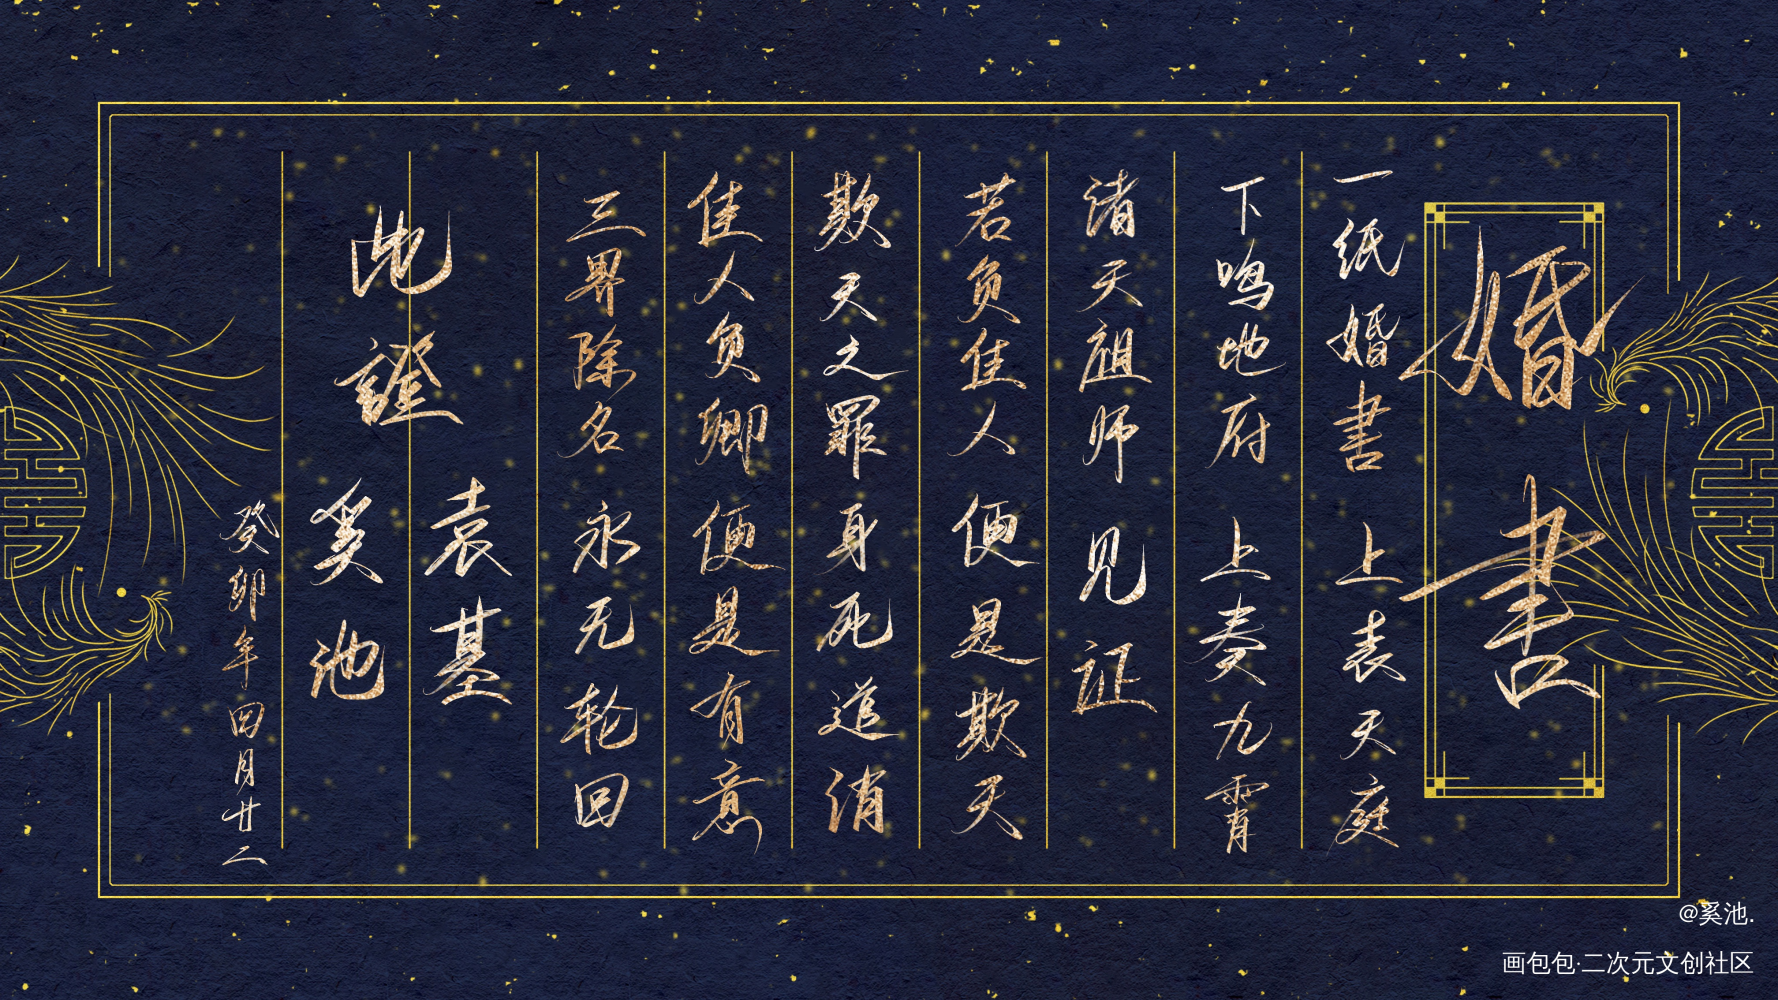 婚书
一纸婚书 上表天庭
下鸣地府 上奏九霄
诸天祖师 见证
若负佳人 便是欺天
欺天之罪 身死道消
佳人负卿 便是有意
三界除名 永无轮回
此證
袁基
奚池
癸卯年四月廿二
@奚池.
画包包·二次元文创社区